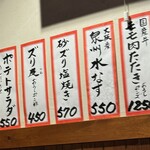 国産牛
もも肉たたき
1250
大阪産
泉州水なす
550
砂ズリ塩焼き
570
ズリ焼
450
ポテトサラダ
550